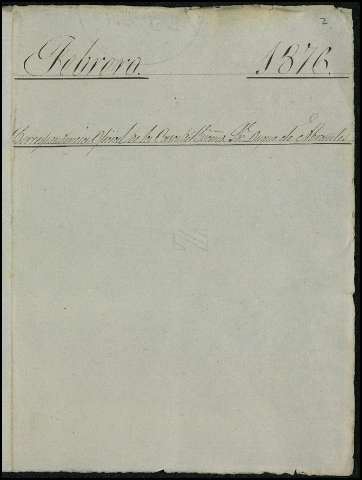 2
Febrero. 1876.
Correspondencia Oficial de la Casa del Excmo. Sr. Duque de Abrantes